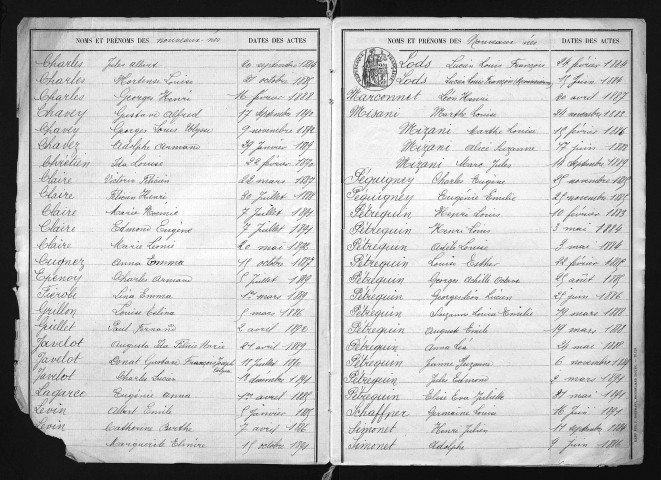 NOMS ET PRÉNOMS DES nouveaux-nés DATES DES ACTES
Charles Jules Albert 20 septembre 1884
Charles Hortense Louise 21 octobre 1885
Charles Georges Henri 16 février 1888
Chavey Gustave Alfred 17 septembre 1890
Chavey Georges Louis 9 novembre 1892
Chavey Adolphe Armand 29 Janvier
Chrétien Ida Louise 22 février 1890
Claire 22 mars 1887
Claire Henri 20 Juillet 1888
Claire Marie Noémie 7 Juillet 1891
Claire Edmond Eugène 7 Juillet 1891
Claire Marie 20 mai 1892
Cugnez Anna Emma 15 octobre 1887
Epenoy Charles Armand 5 Juillet 1889
Fierobe Lina Emma 1er mars 1889
Grillon Louise Célina 5 mars 1886
Guillet Paul Fernand 2 avril 1892
Javelot Augusta 21 avril 1889
Javelot Donat Gustave François Joseph 18 Juillet 1890
Javelot Charles décembre 1891
Lagarce Eugénie Anna 1er avril 1885
Levin Albert Emile 5 Janvier 1885
Levin Catherine Berthe 7 avril 1886
Marguerite Elmire 15 octobre 1891
NOMS ET PRÉNOMS DES Nouveaux-nés DATES DES ACTES
Lods Lucien Louis François 24 février 1884
Lods Lucien Louis François 15 Juin 1884
Marconnet Léon Henri 20 avril 1887
Misani Marthe Louise 21 novembre 1883
Mizani Marthe Louise 15 février 1886
Mizani Alice Suzanne 17 juin 1888
Mizani Marc Jules 14 septembre 1889
Péquigney Charles Eugène 25 novembre 1885
Péquigney Eugénie Emilie 25 novembre 1885
Pétrequin Henri Louis 10 février 1883
Pétrequin Henri Louis 3 mai 1884
Pétrequin Adèle Louise 6 mai 1884
Pétrequin Louise Esther 22 février 1885
Pétrequin Georges Achille 25 août 1885
Pétrequin Georges Léon Lucien 27 juin 1886
Pétrequin Suzanne Louise Emilie 19 mars 1888
Pétrequin Auguste Emile 19 mars 1888
Pétrequin Anna Léa 24 mai 1888
Pétrequin Jeanne Suzanne 6 novembre
Pétrequin Jules Edmond 3 mars 1891
Pétrequin Elise Eva Juliette 31 mai 1891
Schaffner Germaine Louise 16 Juin 1891
Simonet Henri Julien 11 septembre 1884
Simonet Adolphe 9 Juin 1886